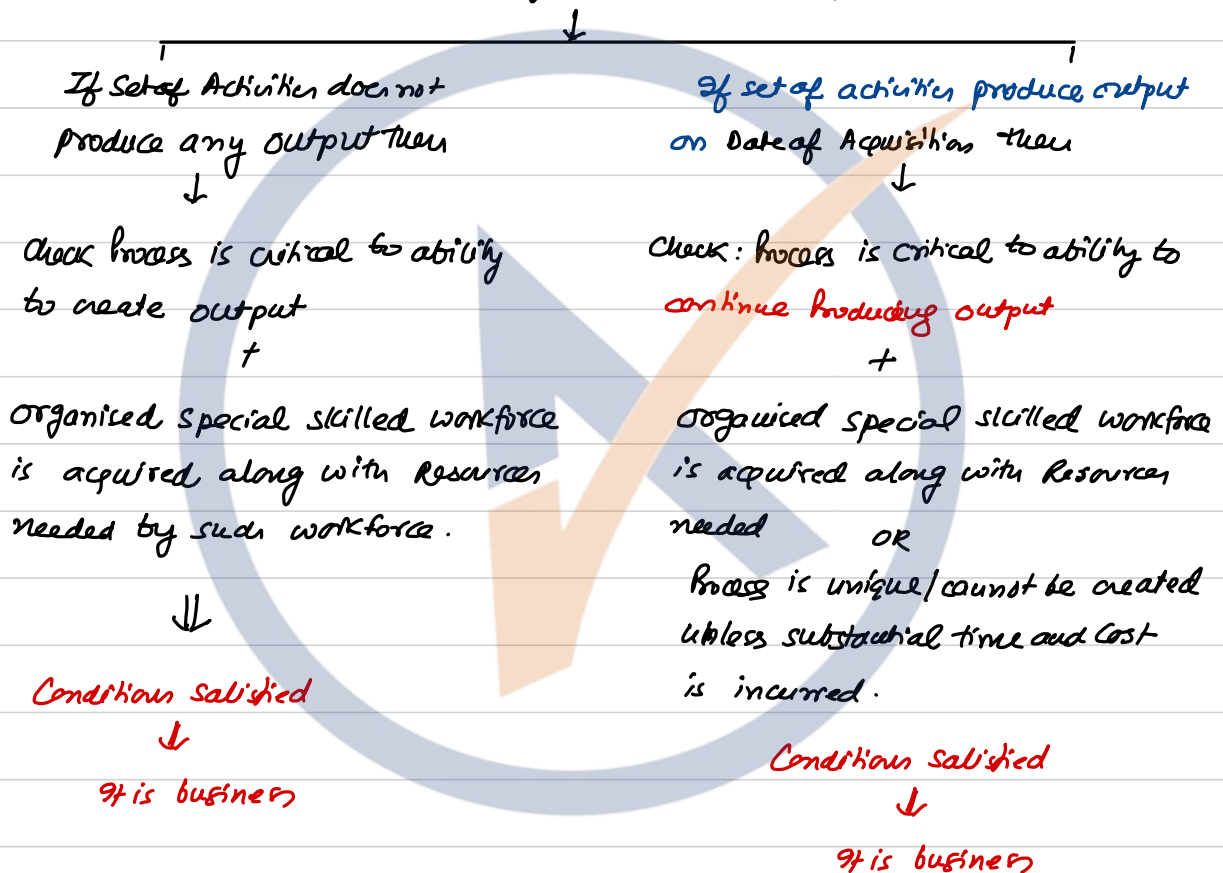 If set of Activities does not
produce any output then
↓
Check Process is critical to ability
to create output
+
Organised special skilled workforce
is acquired along with Resources
needed by such workforce.
⇓
Conditions satisfied
↓
It is business
If set of activities produce output
on Date of Acquisition then
↓
Check: Process is critical to ability to
continue Producing output
+
Organised special skilled workforce
is acquired along with Resources
needed OR
Process is unique/cannot be created
unless substantial time and cost
is incurred.
Conditions satisfied
↓
It is business